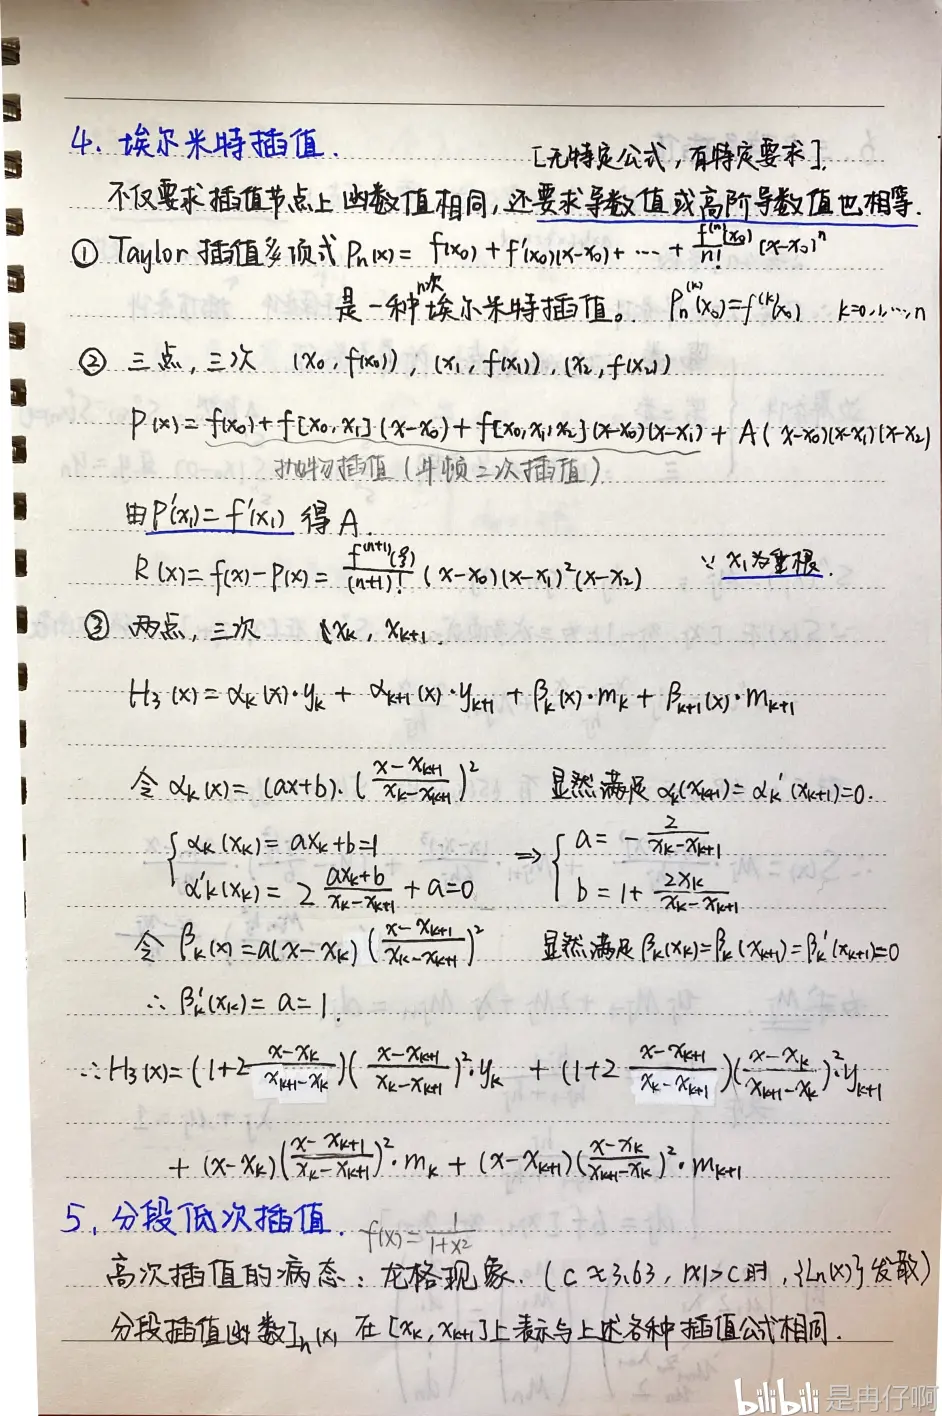 4. 埃尔米特插值. [无特定公式, 有特定要求].
不仅要求插值节点上函数值相同, 还要求导数值或高阶导数值也相等.
① Taylor 插值多项式 Pn(x) = f(x₀) + f'(x₀)(x-x₀) + ··· + f⁽ⁿ⁾(x₀)/n! (x-x₀)ⁿ
是一种n次埃尔米特插值。 Pn⁽ᵏ⁾(x₀) = f⁽ᵏ⁾(x₀) k=0,1,…,n
② 三点, 三次 (x₀, f(x₀)), (x₁, f(x₁)), (x₂, f(x₂))
P(x) = f(x₀) + f[x₀,x₁](x-x₀) + f[x₀,x₁,x₂](x-x₀)(x-x₁) + A(x-x₀)(x-x₁)(x-x₂)
抛物插值(牛顿二次插值)
由P'(x₁) = f'(x₁) 得 A.
R(x) = f(x) - P(x) = f⁽ⁿ⁺¹⁾(ξ)/(n+1)! (x-x₀)(x-x₁)²(x-x₂) ∵ x₁为重根.
③ 两点, 三次 xₖ, xₖ₊₁.
H₃(x) = αₖ(x)·yₖ + αₖ₊₁(x)·yₖ₊₁ + βₖ(x)·mₖ + βₖ₊₁(x)·mₖ₊₁
令 αₖ(x) = (ax+b)·((x-xₖ₊₁)/(xₖ-xₖ₊₁))² 显然满足 αₖ(xₖ₊₁) = αₖ'(xₖ₊₁) = 0.
{ αₖ(xₖ) = axₖ+b = 1 ⇒ { a = -2/(xₖ-xₖ₊₁)
α'ₖ(xₖ) = 2 (axₖ+b)/(xₖ-xₖ₊₁) + a = 0 b = 1 + 2xₖ/(xₖ-xₖ₊₁)
令 βₖ(x) = a(x-xₖ)((x-xₖ₊₁)/(xₖ-xₖ₊₁))² 显然满足 βₖ(xₖ) = βₖ(xₖ₊₁) = βₖ'(xₖ₊₁) = 0
∴ βₖ'(xₖ) = a = 1.
∴ H₃(x) = (1+2 (x-xₖ)/(xₖ₊₁-xₖ))((x-xₖ₊₁)/(xₖ-xₖ₊₁))²·yₖ + (1+2 (x-xₖ₊₁)/(xₖ-xₖ₊₁))((x-xₖ)/(xₖ₊₁-xₖ))²·yₖ₊₁
+ (x-xₖ)((x-xₖ₊₁)/(xₖ-xₖ₊₁))²·mₖ + (x-xₖ₊₁)((x-xₖ)/(xₖ₊₁-xₖ))²·mₖ₊₁
5. 分段低次插值. f(x) = 1/(1+x²)
高次插值的病态: 龙格现象. (c≈3.63, |x|>c时, {Ln(x)}发散)
分段插值函数Iₙ(x) 在[xₖ, xₖ₊₁]上表示与上述各种插值公式相同.
bilibili 是冉仔啊